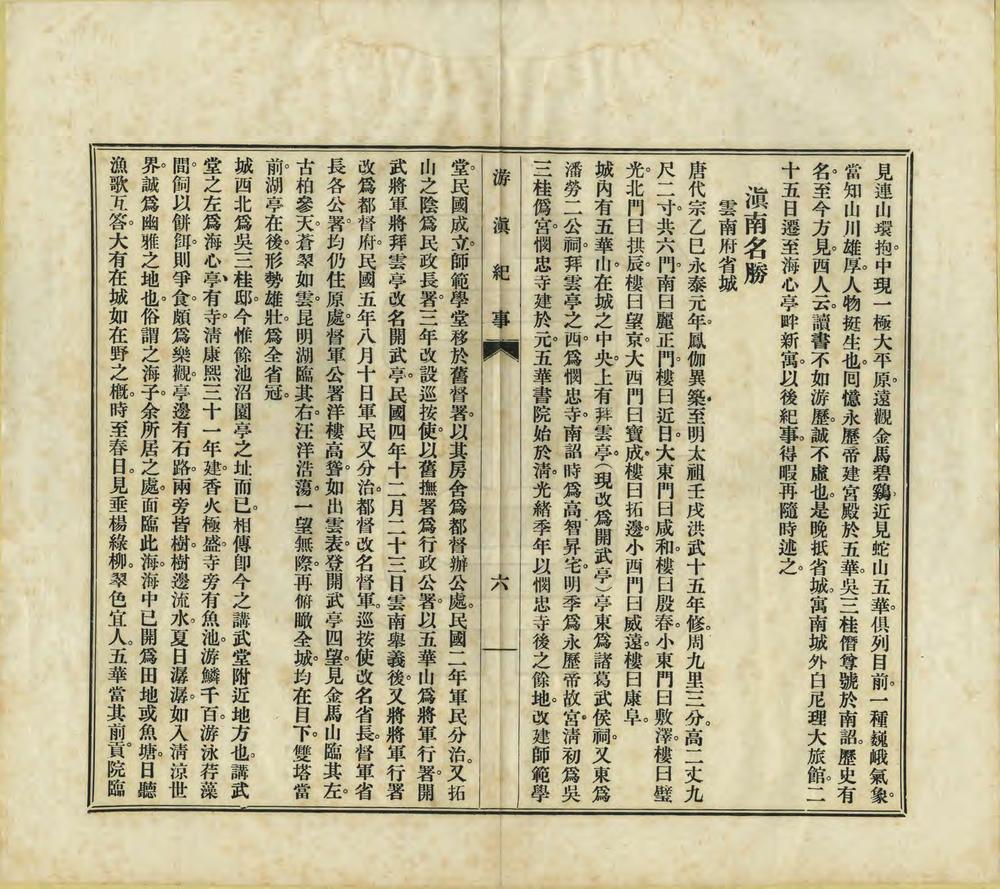 見連山環抱。中現一極大平原。遠觀金馬碧鷄。近見蛇山五華。俱列目前。一種巍峨氣象。
當知山川雄厚。人物挺生也。回憶永歷帝建宮殿於五華。吳三桂僭尊號於南詔。歷史有
名。至今方見。西人云。讀書不如游歷。誠不虛也。是晚抵省城。寓南城外白尼理大旅館。二
十五日遷至海心亭畔新寓。以後紀事。得暇再隨時述之。
滇南名勝
雲南府省城
唐代宗乙巳永泰元年。鳳伽異築。至明太祖壬戌洪武十五年修。周九里三分。高二丈九
尺二寸。共六門。南曰麗正門。樓曰近日。大東門曰咸和。樓曰殷春。小東門曰敷澤。樓曰璧
光。北門曰拱辰。樓曰望京。大西門曰寶成。樓曰拓邊。小西門曰威遠。樓曰康阜。
城內有五華山。在城之中央。上有拜雲亭（現改爲開武亭）亭東爲諸葛武侯祠。又東爲
潘勞二公祠。拜雲亭之西。爲憫忠寺。南詔時爲高智昇宅。明季爲永歷帝故宮。清初爲吳
三桂僞宮。憫忠寺建於元。五華書院始於清。光緒季年。以憫忠寺後之餘地。改建師範學
游滇紀事
六
堂。民國成立。師範學堂移於舊督署。以其房舍爲都督辦公處。民國二年軍民分治。又拓
山之陰爲民政長署。三年改設巡按使。以舊撫署爲行政公署。以五華山爲將軍行署。開
武將軍將拜雲亭改名開武亭。民國四年十二月二十三日雲南舉義後。又將將軍行署
改爲都督府。民國五年八月十日軍民又分治。都督改名督軍。巡按使改名省長。督軍省
長各公署均仍住原處。督軍公署洋樓高聳如出雲表。登開武亭四望。見金馬山臨其左。
古柏參天。蒼翠如雲。昆明湖臨其右。汪洋浩蕩。一望無際。再俯瞰全城。均在目下。雙塔當
前。湖亭在後。形勢雄壯。爲全省冠。
城西北爲吳三桂邸。今惟餘池沼園亭之址而已。相傳卽今之講武堂附近地方也。講武
堂之左爲海心亭、有寺。淸康熙三十一年建。香火極盛。寺旁有魚池。游鱗千百。游泳荇藻
間。飼以餅餌。則爭食。頗爲樂觀。亭邊有石路。兩旁皆樹。樹邊流水。夏日潺潺。如入淸涼世
界。誠爲幽雅之地也。俗謂之海子。余所居之處。面臨此海。海中已開爲田地或魚塘。日聽
漁歌互答。大有在城如在野之概。時至春日。見垂楊綠柳。翠色宜人。五華當其前。貢院臨